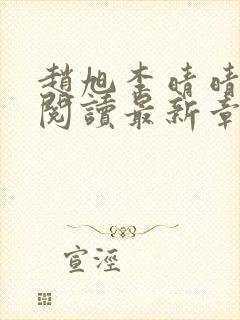 趙旭李晴晴
閱讀最新章
宣涇